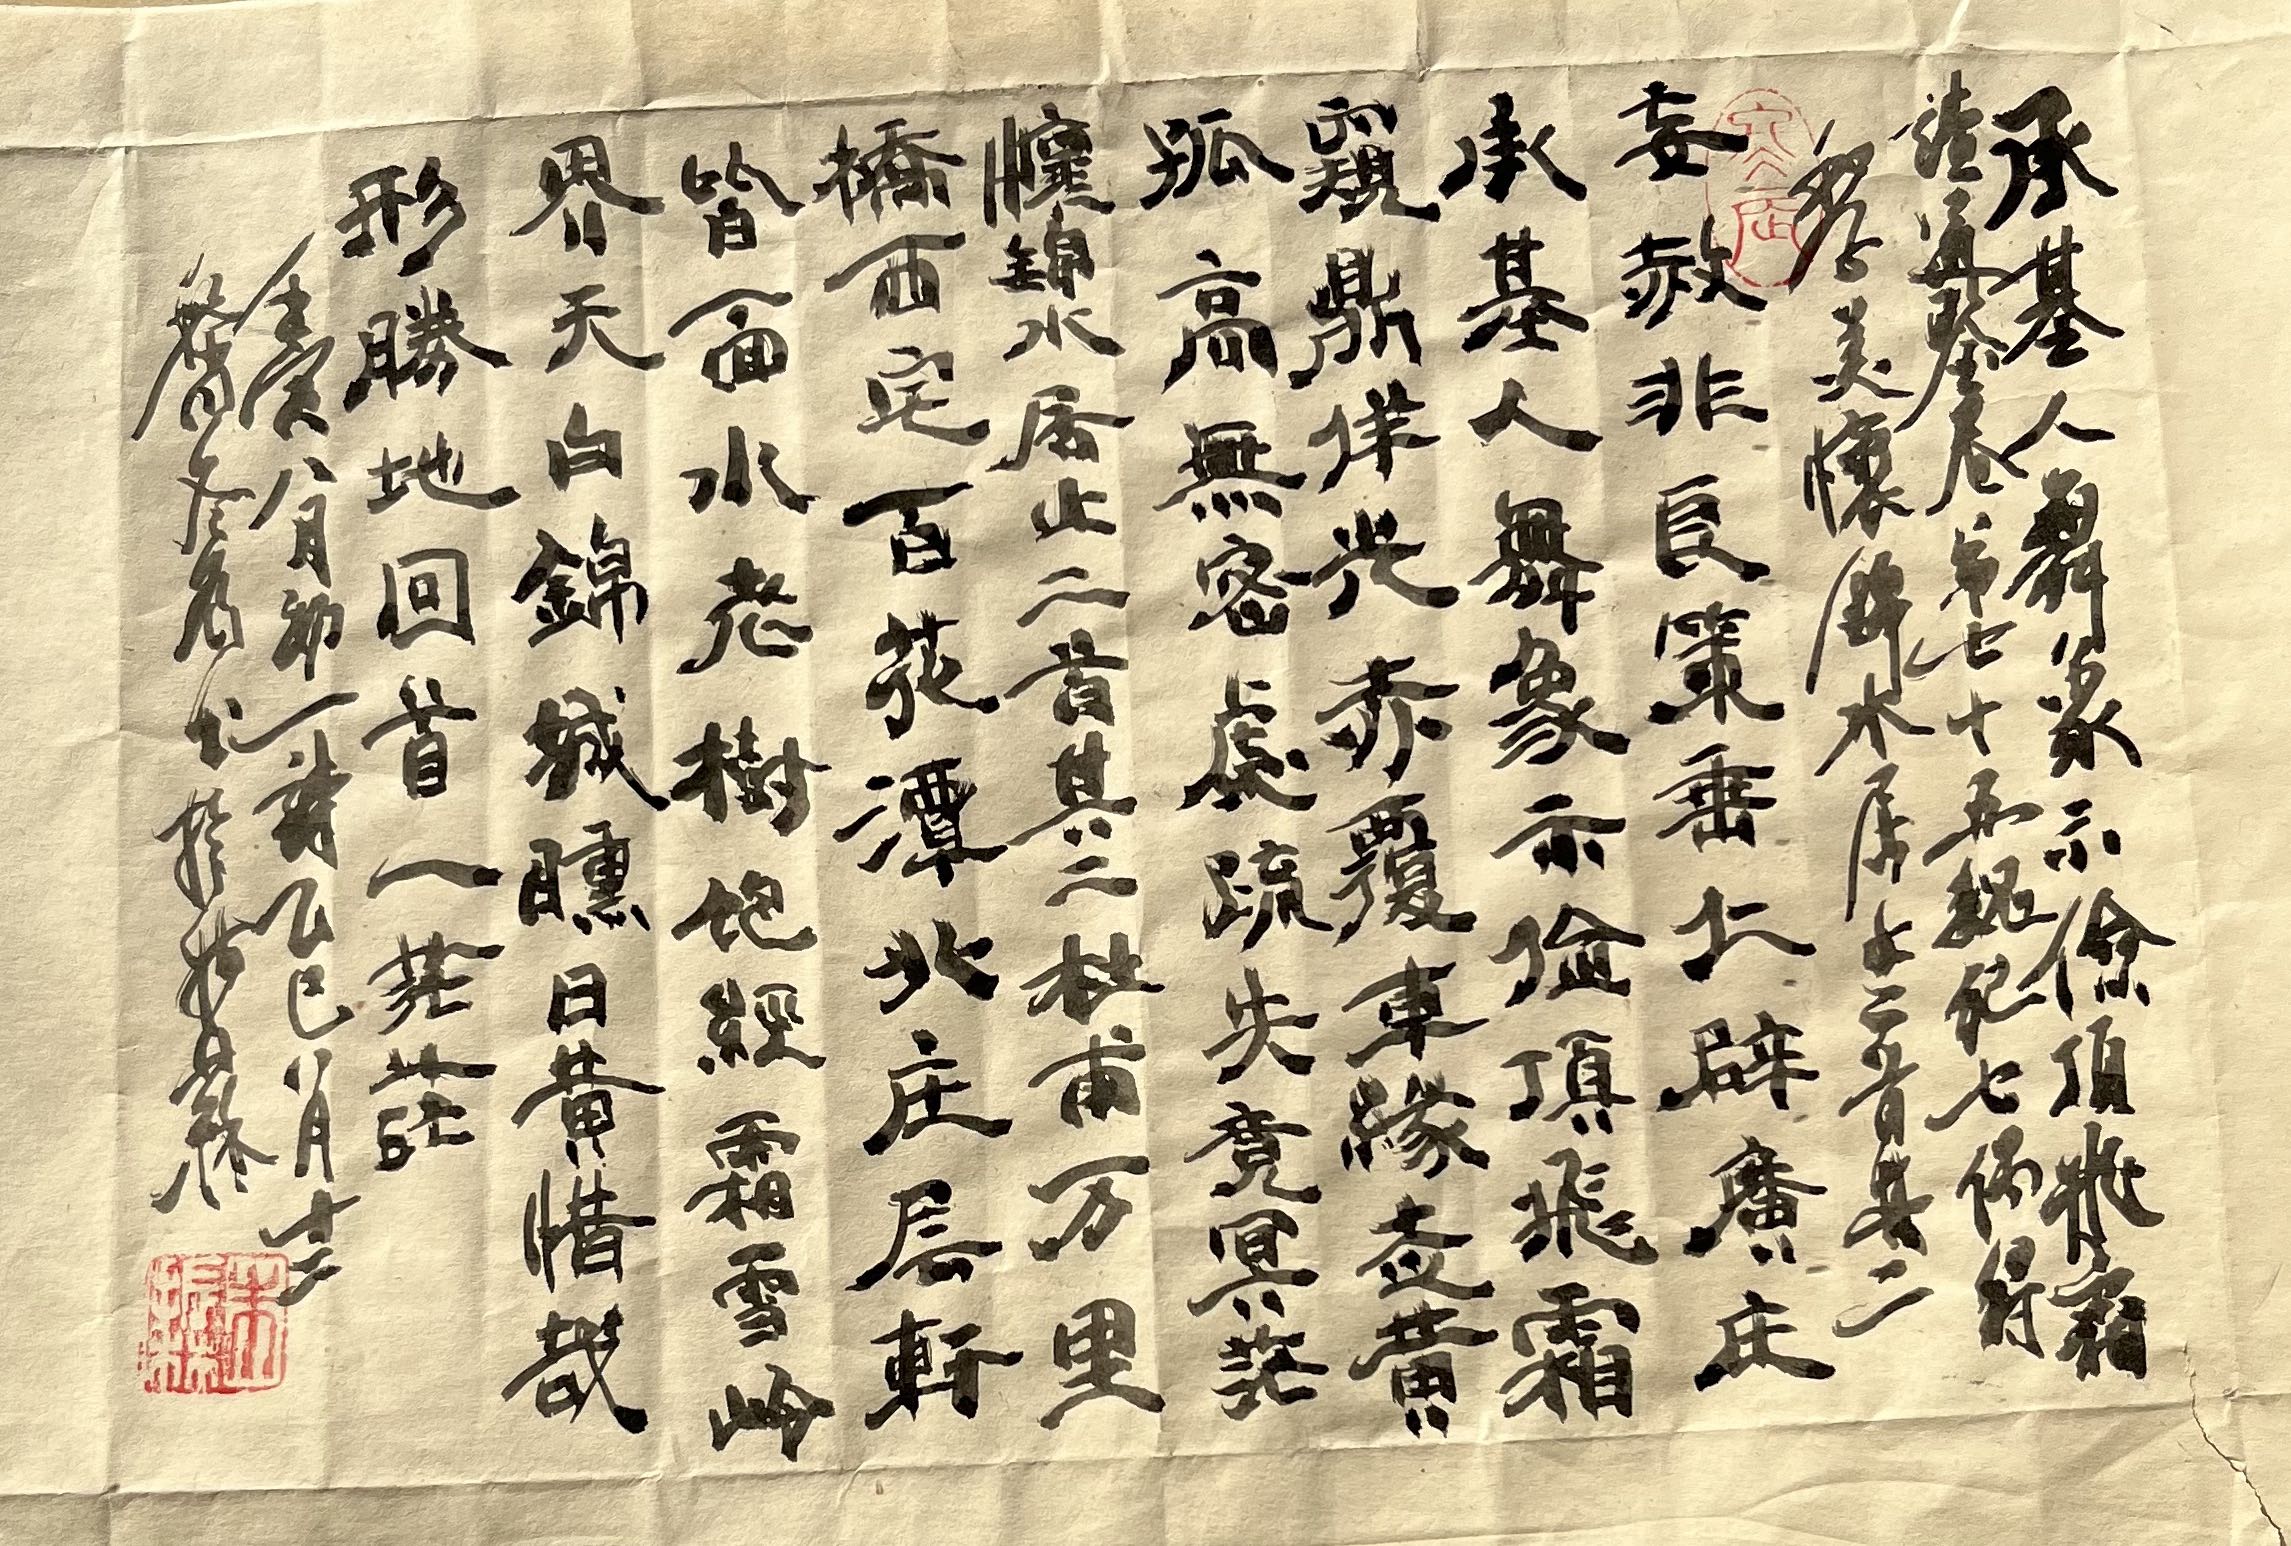 承基人舞象示儉頂飛霜
讀通鑒卷第七十五魏紀七偶得
學美懷錦水居止二首其二
妄赦非良策垂仁辟廣庄
承基人舞象示儉頂飛霜
窺鼎佯光赤覆車緣壺黃
孤高無容處疏失竟冥茫
懷錦水居止二首其二杜甫万里
橋西宅百花潭北庄层軒
皆面水老樹飽經霜雪岭
界天白錦城曛日黃惜哉
形勝地回首一茫茫
壬寅八月初一詩乙巳八月十三